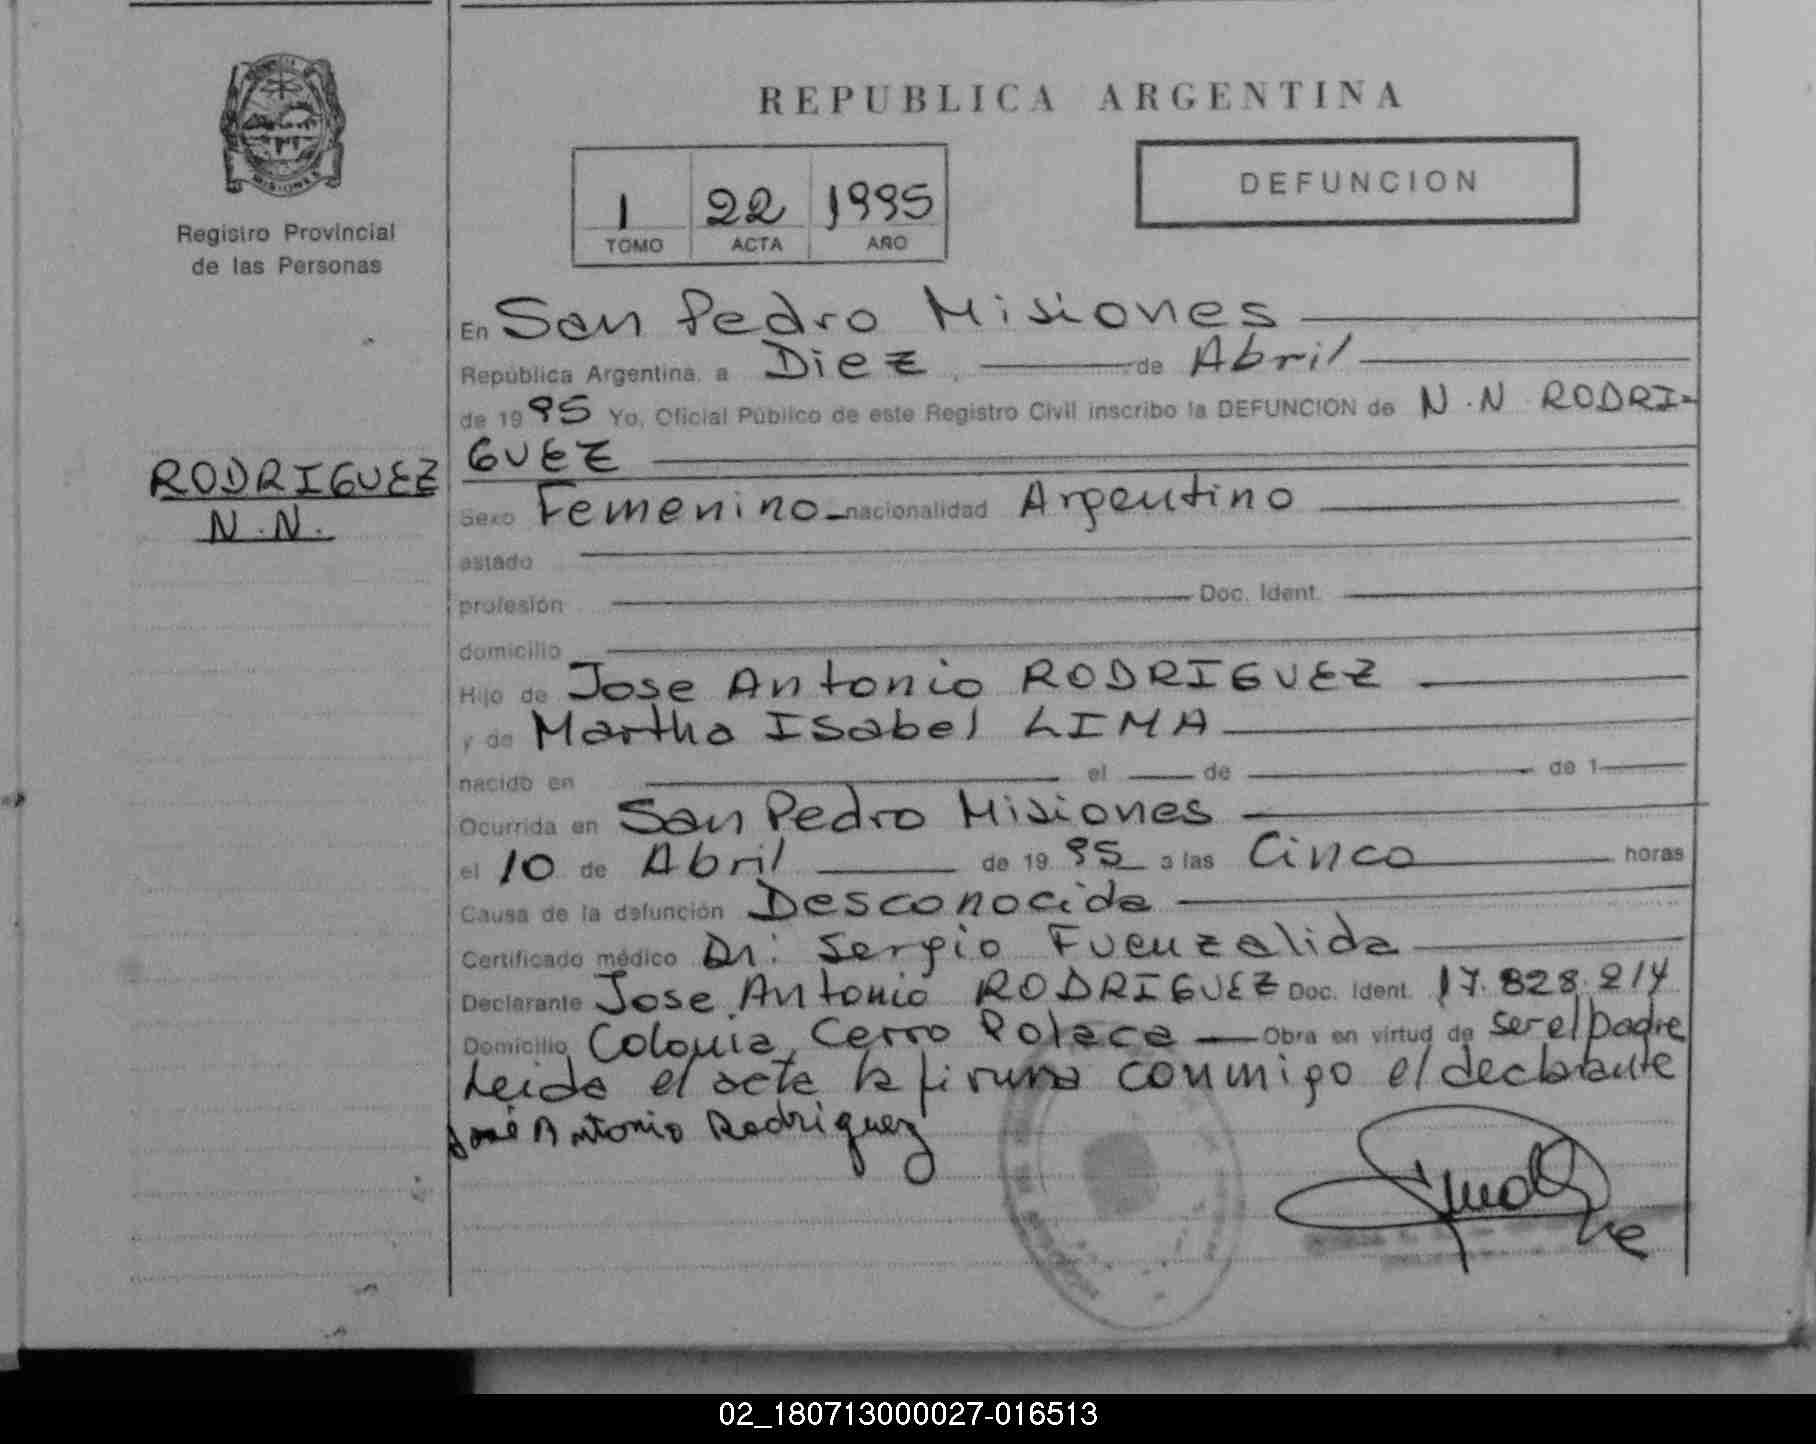 REPUBLICA ARGENTINA
MISIONES
Registro Provincial
de las Personas
1 22 1995
TOMO ACTA AÑO
DEFUNCION
RODRIGUEZ
N.N.
En San Pedro Misiones
República Argentina, a Diez de Abril
de 1995 Yo, Oficial Público de este Registro Civil inscribo la DEFUNCION de N.N RODRI-
GUEZ
Sexo Femenino nacionalidad Argentino
estado
profesión Doc. Ident.
domicilio
Hijo de Jose Antonio RODRIGUEZ
y de Martha Isabel LIMA
nacido en el de de 1
Ocurrida en San Pedro Misiones
el 10 de Abril de 1995 a las Cinco horas
Causa de la defunción Desconocida
Certificado médico Dr: Sergio Fuenzalida
Declarante Jose Antonio RODRIGUEZ Doc. Ident. 17.828.214
Domicilio Colonia Cerro Polaca Obra en virtud de ser el padre
Leida el acta la firma conmigo el declarante
José Antonio Rodriguez
02_180713000027-016513